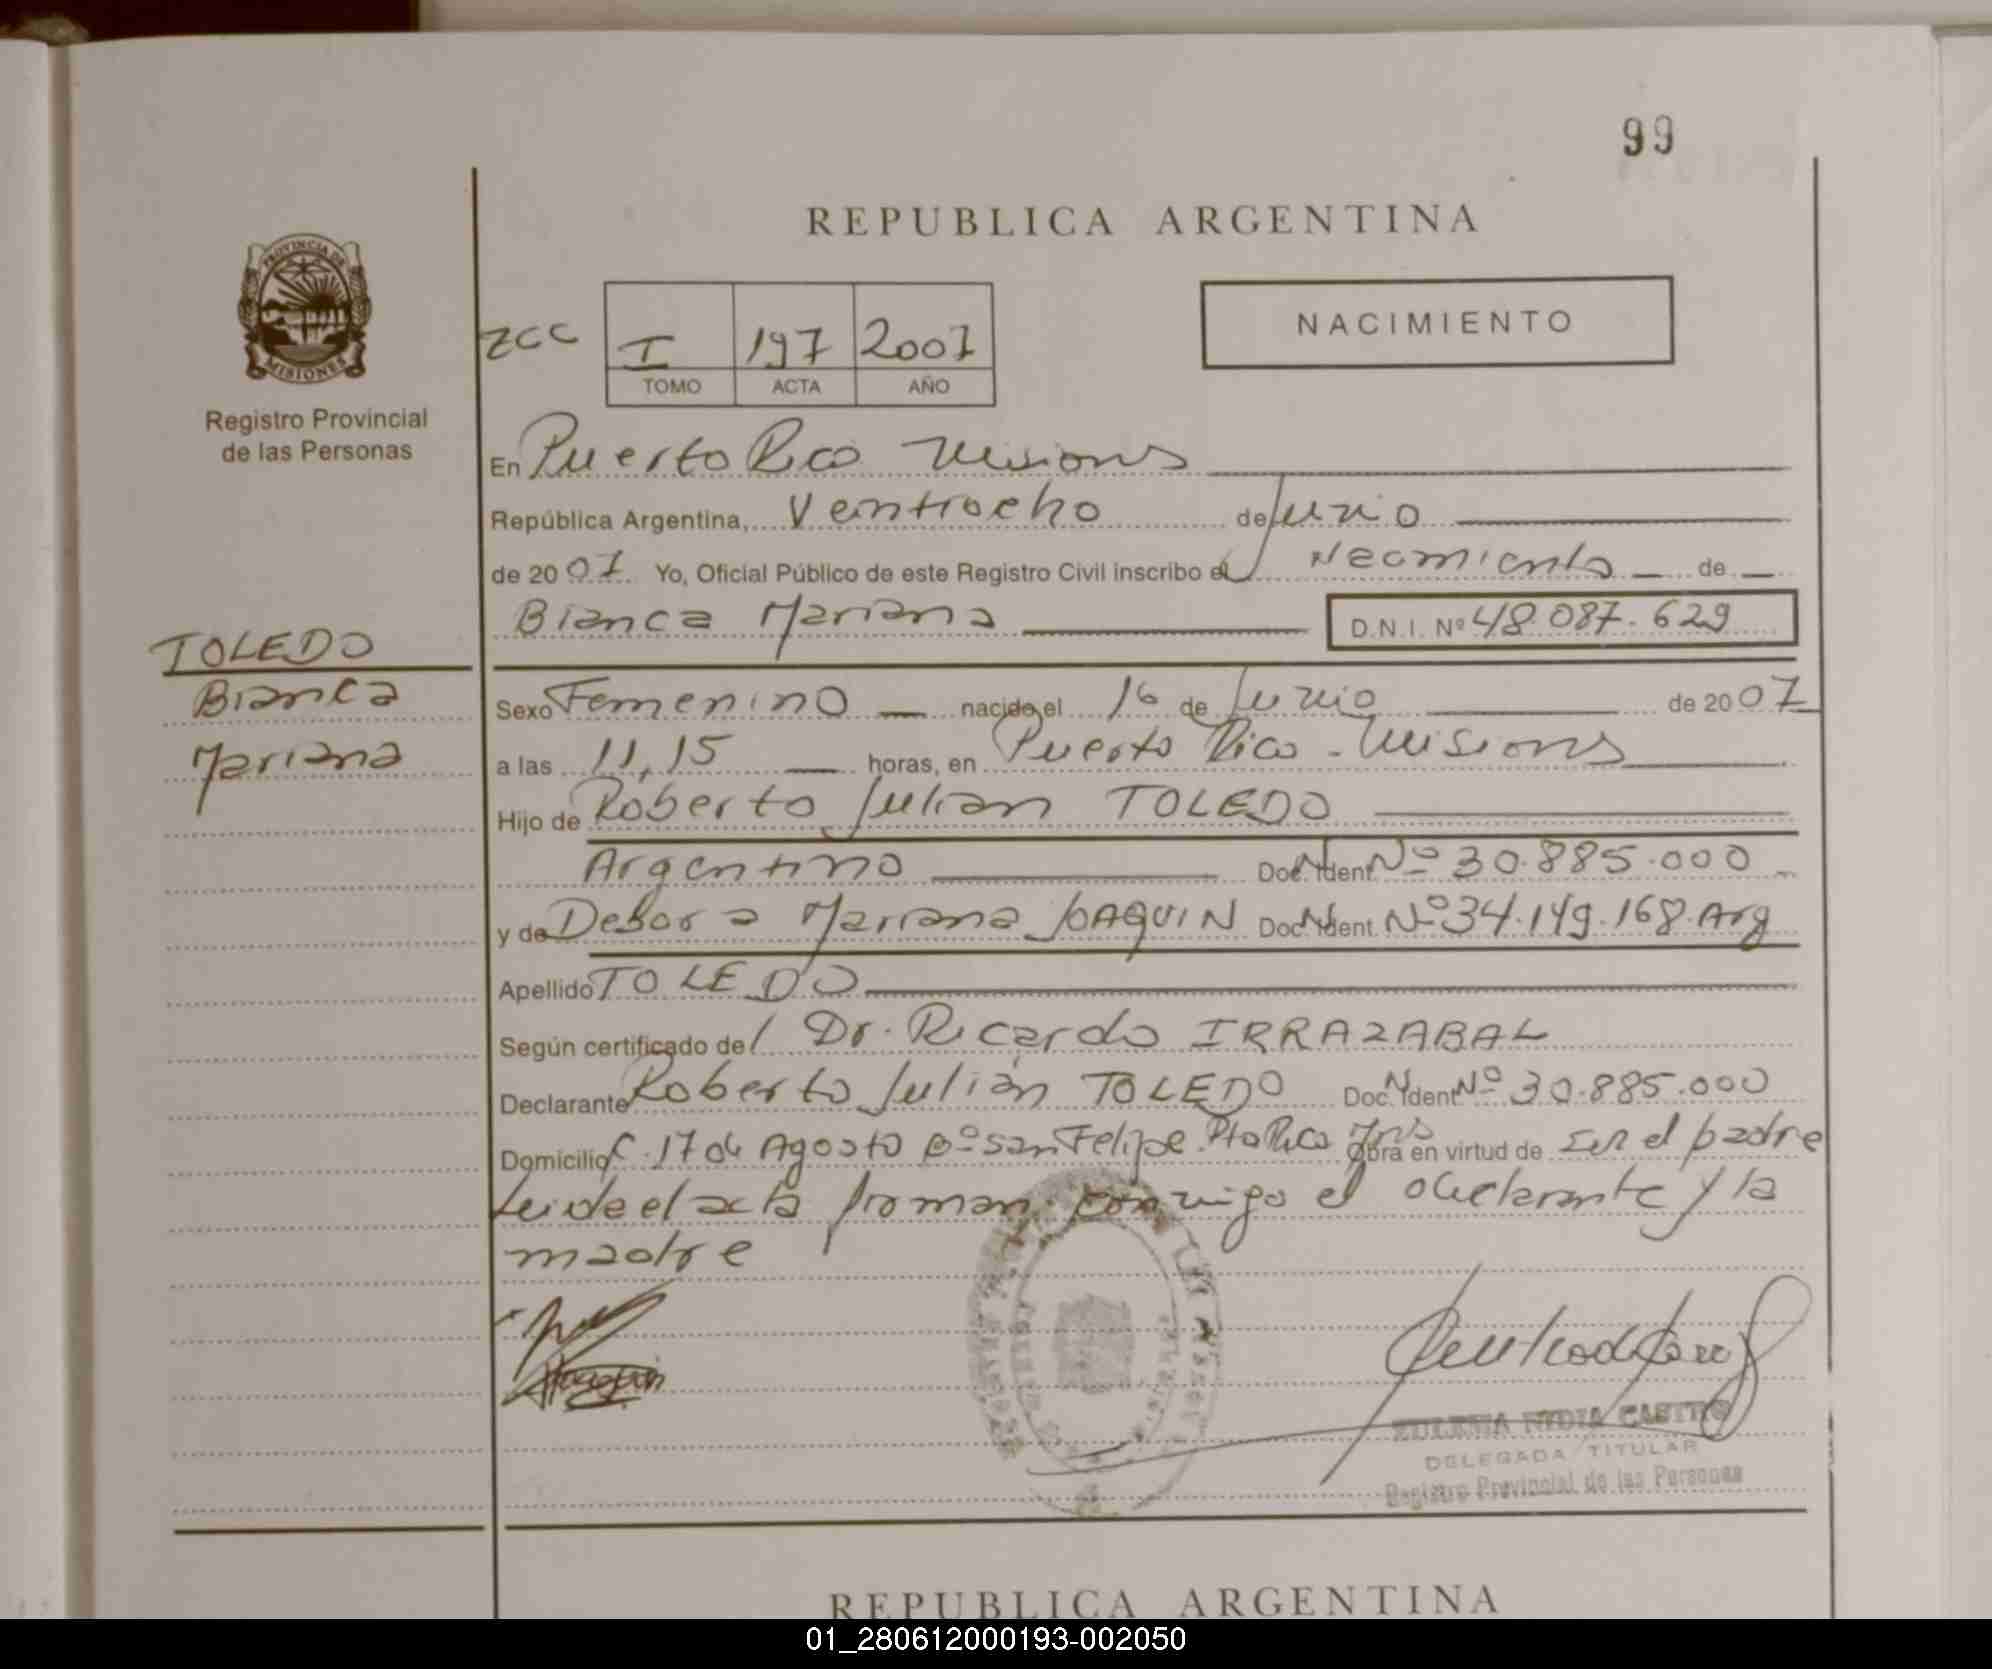 99
REPUBLICA ARGENTINA
PROVINCIA DE
MISIONES
Registro Provincial
de las Personas
ZCC
I 197 2007
TOMO ACTA AÑO
NACIMIENTO
En Puerto Rico Misiones
República Argentina, Veintiocho de Junio
de 2007 Yo, Oficial Público de este Registro Civil inscribo el Nacimiento de
Bianca Mariana D.N.I. Nº 48.087.629
TOLEDO
Bianca
Mariana
Sexo Femenino nacido el 16 de Junio de 2007
a las 11,15 horas, en Puerto Rico - Misiones
Hijo de Roberto Julian TOLEDO
Argentino Doc. Ident. Nº 30.885.000
y de Debora Mariana JOAQUIN Doc. Ident. Nº 34.149.168. Arg
Apellido TOLEDO
Según certificado del Dr. Ricardo IRRAZABAL
Declarante Roberto Julián TOLEDO Doc. Ident Nº 30.885.000
Domicilio C. 17 de Agosto Bº San Felipe. Pto Rico Mns Obra en virtud de ser el padre
Leida el acta firman conmigo el declarante y la
madre
CASTRO
DELEGADA TITULAR
Registro Provincial de las Personas
REPUBLICA ARGENTINA
01_280612000193-002050